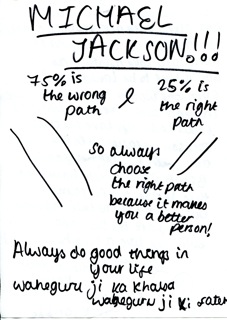 MICHAEL
JACKSON!!!
75% is the wrong path
&
25% is the right path
So always
choose
the right path
because it makes
you a better
person!
Always do good things in
your life
waheguru ji ka khalsa
waheguru ji ki